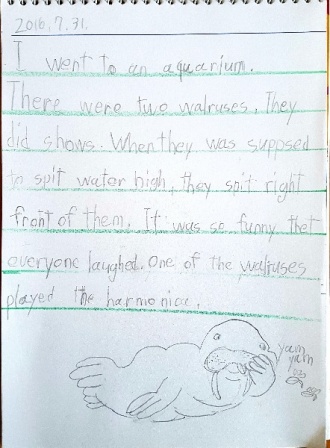 2016.7.31.
I went to an aquarium.
There were two walruses. They
did shows. When they was supposed
to spit water high, they spit right
front of them. It was so funny thet
everyone laughed. One of the walruses
played the harmonica.
yam
yam